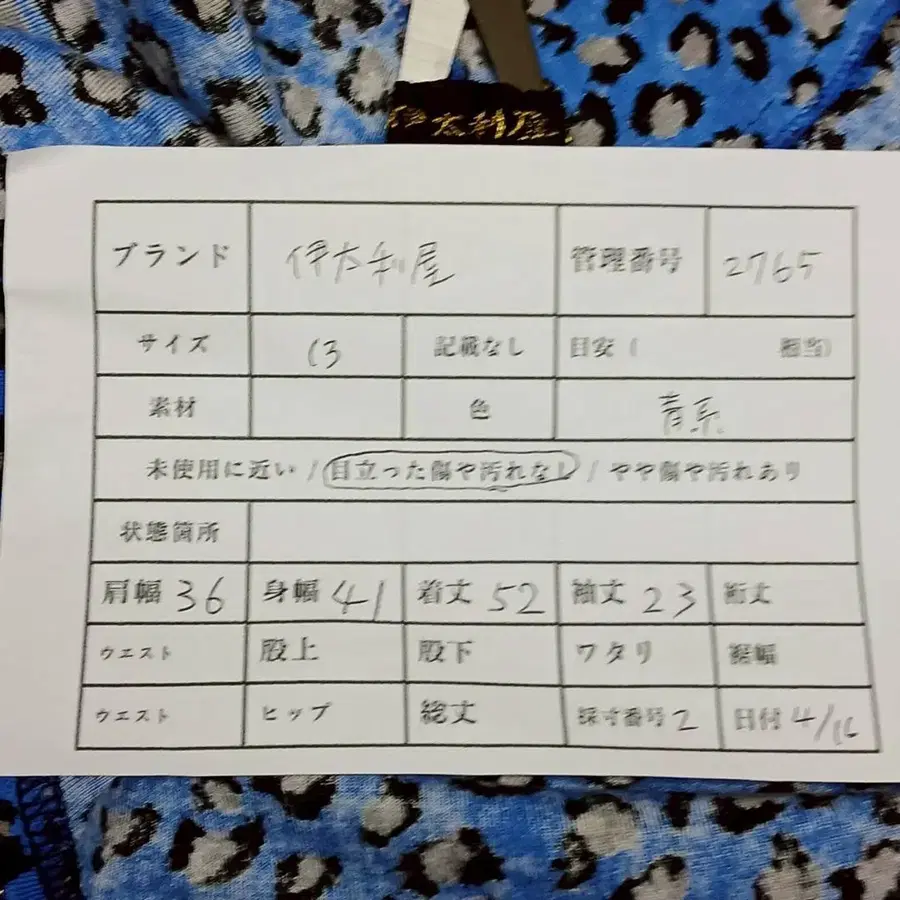 伊太利屋
ブランド 伊太利屋 管理番号 2765
サイズ 13 記載なし 目安( 相当)
素材 色 青系
未使用に近い / 目立った傷や汚れなし / やや傷や汚れあり
状態箇所
肩幅 36 身幅 41 着丈 52 袖丈 23 裄丈
ウエスト 股上 股下 ワタリ 裾幅
ウエスト ヒップ 総丈 採寸番号 2 日付 4/16